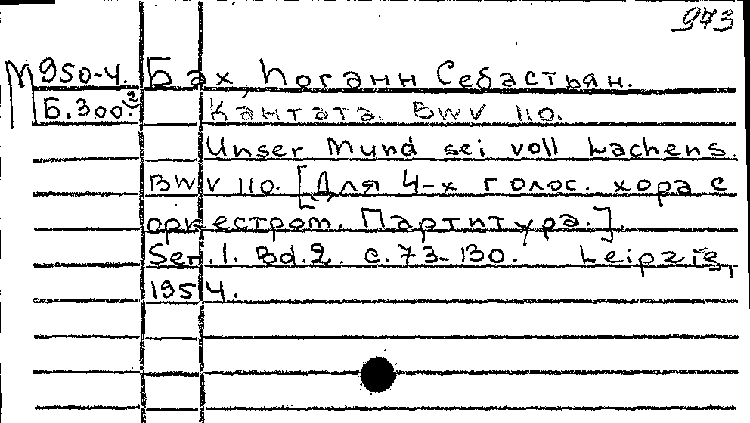 973
М950-4. Бах, Иоганн Себастьян.
Б.300. Кантата. BWV 110.
Unser Mund sei voll Lachens.
BWV 110. [Для 4-х голос. хора с
оркестром. Партитура.].
Ser. 1. Bd. 2. с. 73-130. Leipzig,
1954.